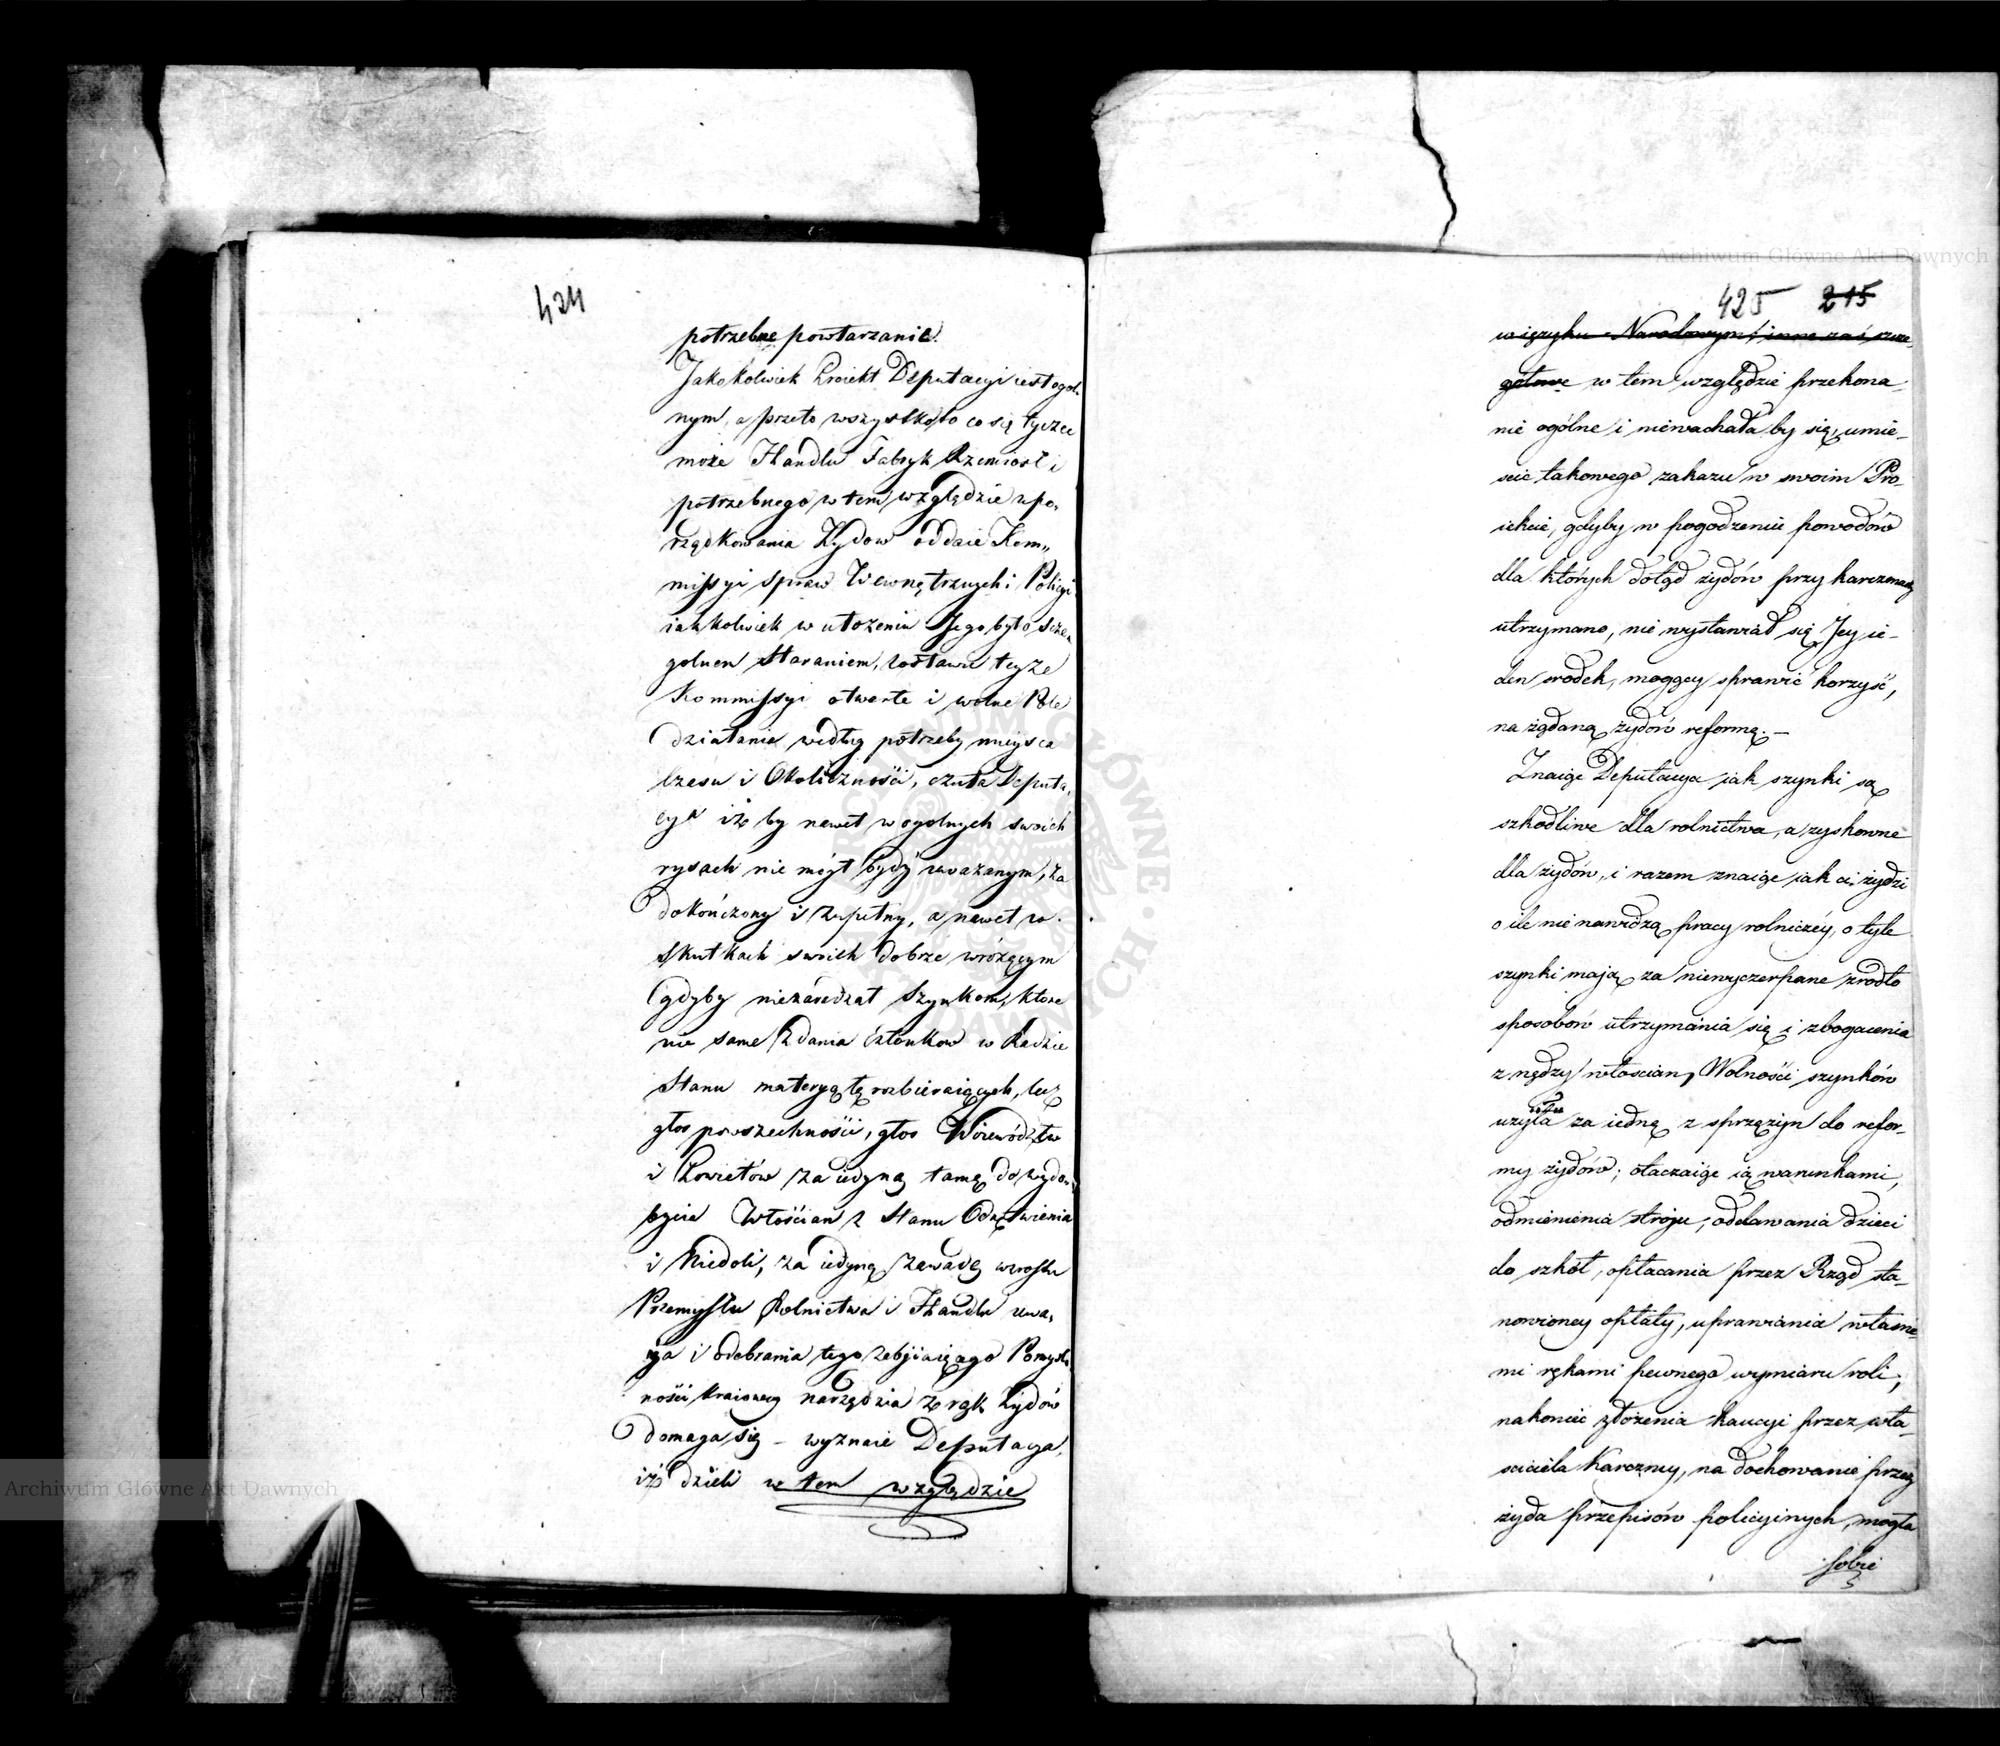 424
potrzebne powtarzanie.
Jakokolwiek Proiekt Deputacyi iest ogol-
nym, a przeto wszystko to co się tycze
może Handlu Fabryk Rzemiosł i
potrzebnego w tem względzie upo-
rządkowania Żydow oddaie Kom-
missyi Spraw Wewnętrznych i Policyi
iakkolwiek w ułożeniu Jego było szcze
golnem staraniem, zostawić teyże
Kommissyi otwarte i wolne Pole
działania według potrzeby mieysca
Czasu i Okoliczności, czuła Deputa-
cya iż by nawet w ogolnych swoich
rysach nie mógł bydź uważanym, za
dokończony i zupełny, a nawet w
skutkach swoich dobrze wróżącym
gdyby niezaradzał Szynkom, które
nie same Zdania Członkow w Radzie
Stanu materyą tę rozbieraiących, lecz
głos powszechności, głos Woiewództw
i Powiatów za iedyną tamę do wydo-
bycia Włościan z Stanu Odrętwienia
i Niedoli, za iedyną zawadę wzrostu
Przemysłu Rolnictwa i Handlu uwa-
ża i odebrania tego zabijaiącego Pomyśl
ności kraiowey narzędzia z rąk Żydów
domaga się – wyznaie Deputacya,
iż dzieli w tem względzie
425 215
w ięzyku Narodowym, inne zaś szcze-
gółowe w tem względzie przekona
nie ogólne i niewachała by się, umie-
scic takowego zakazu w swoim Pro-
iekcie, gdyby w pogodzenie powodów
dla których dotąd żydów przy karczmach
utrzymano, nie wystawiał się Jey ie-
den srodek, mogący sprawić korzyść,
na żądaną żydów reformę. –
Znaiąc Deputacya iak szynki są
szkodliwe dla rolnictwa, a zyskowne
dla żydów, i razem znaiąc iak ci żydzi
o ile nienawidzą pracy rolniczéy, o tyle
szynki mają za niewyczerpane zrodło
sposobów utrzymania się i zbogacenia
z nędzy włoscian, Wolności szynków
użyła za iedną z sprężyn do refor-
my żydów; otaczaiąc ią warunkami,
odmienienia stroju, oddawania dzieci
do szkół, opłacania przez Rząd sta-
nowioney opłaty, uprawiania własne-
mi rękami pewnego wymiaru roli,
nakoniec złożenia kaucyi przez wła-
sciciela Karczmy, na dochowanie przez
żyda przepisów policyinych, mogła
sobie
Archiwum Główne Akt Dawnych
Archiwum Główne Akt Dawnych